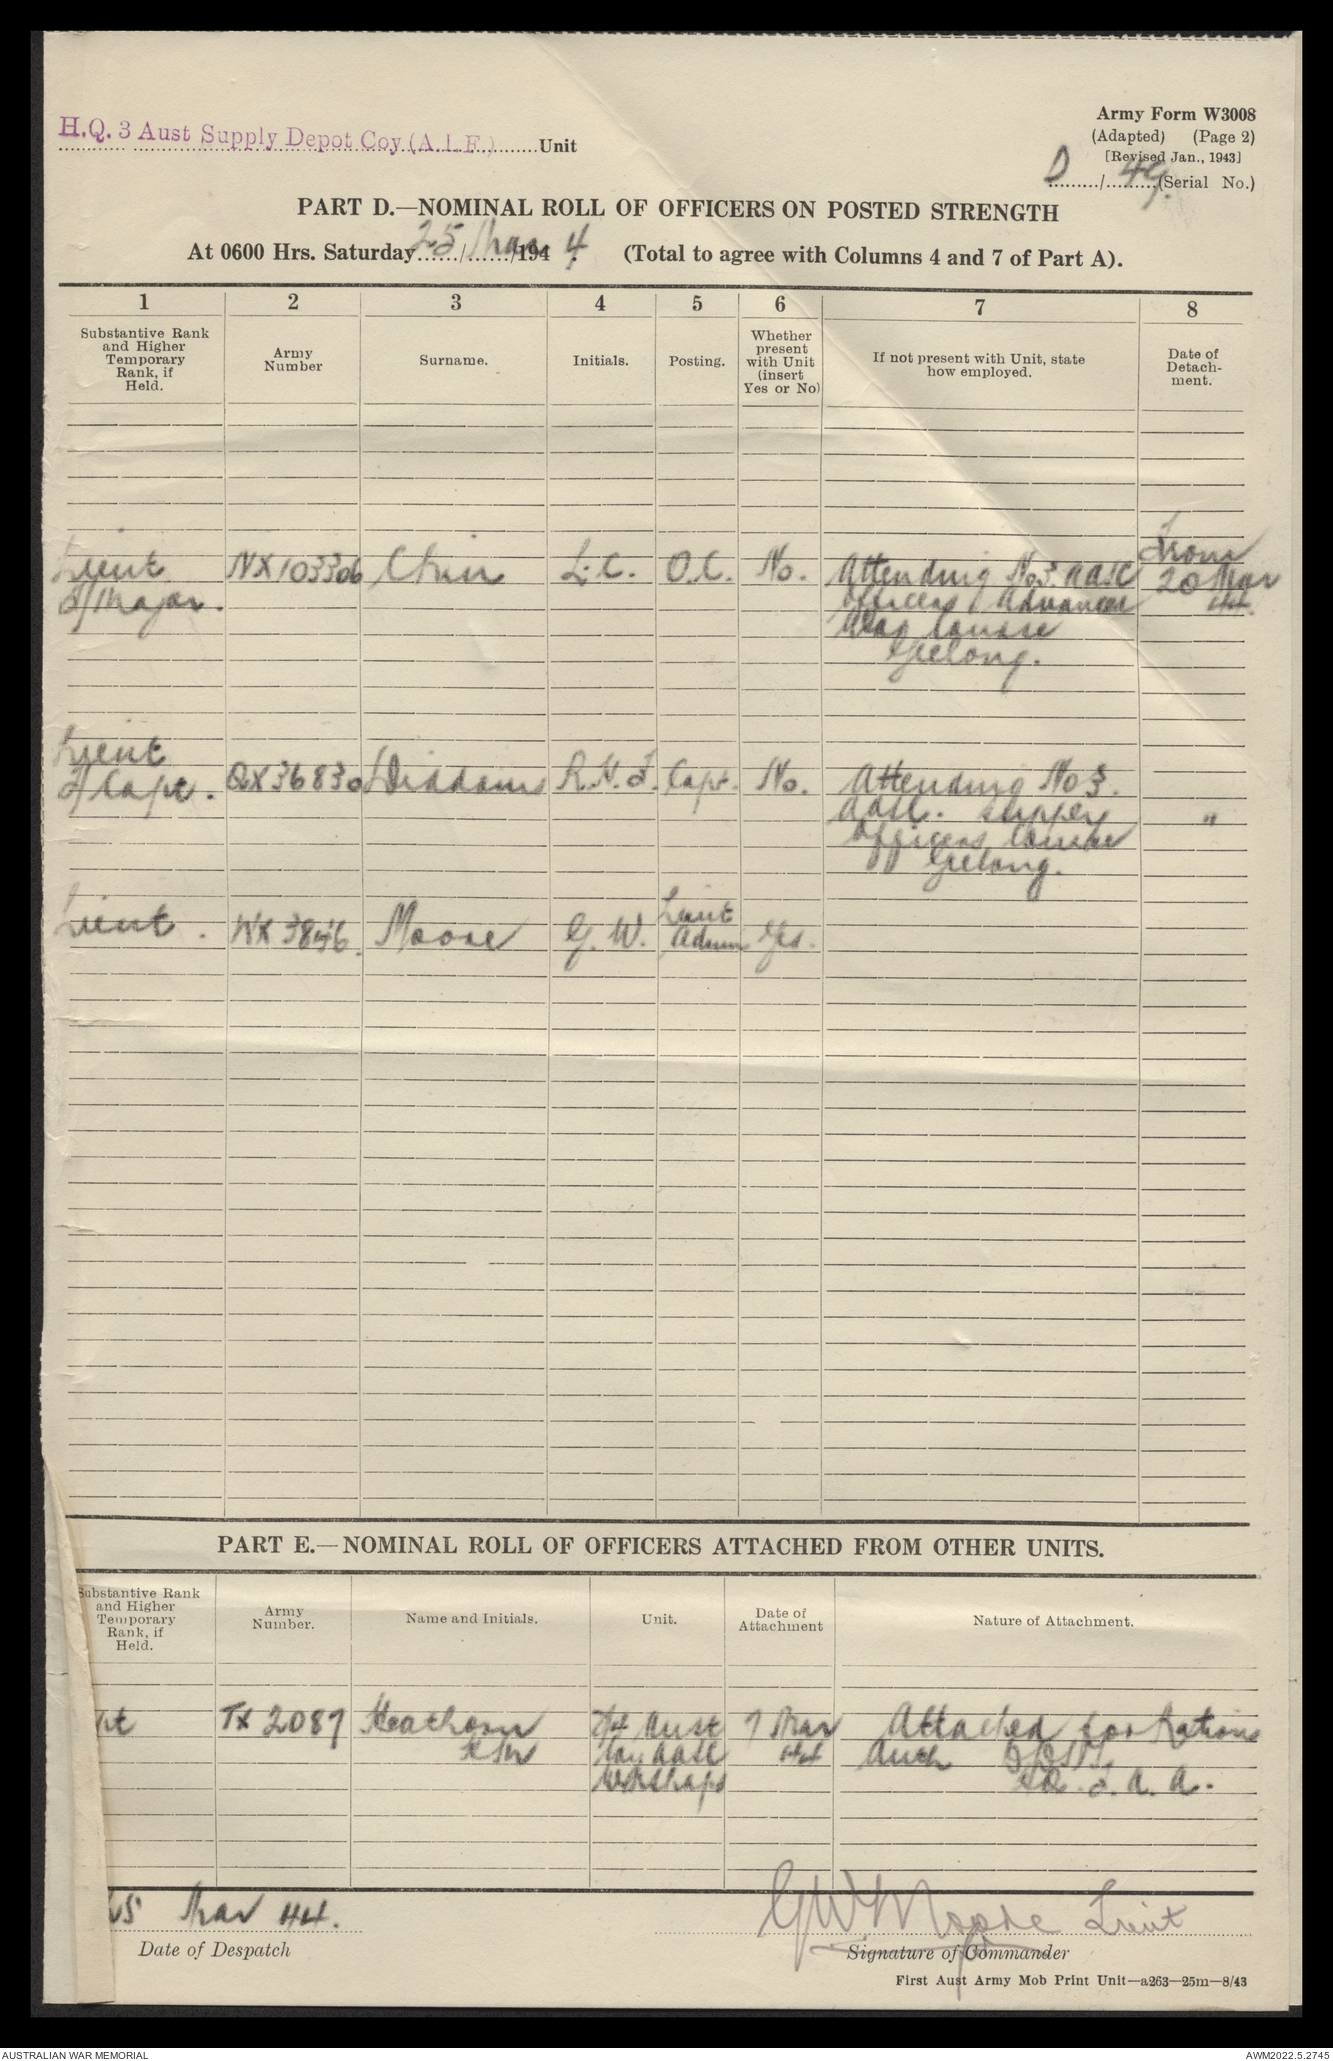 H.Q. 3 Aust Supply Depot Coy (A.I.F.) Unit
Army Form W3008
(Adapted) (Page 2)
[Revised Jan., 1943]
D / 49. (Serial No.)
PART D.—NOMINAL ROLL OF OFFICERS ON POSTED STRENGTH
At 0600 Hrs. Saturday 25/Mar/1944. (Total to agree with Columns 4 and 7 of Part A).
1 2 3 4 5 6 7 8
Substantive Rank and Higher Temporary Rank, if Held.
Army Number
Surname.
Initials.
Posting.
Whether present with Unit (insert Yes or No)
If not present with Unit, state how employed.
Date of Detachment.
Lieut NX103306 Chin L.C. O.C. No. Attending No 3. AASC From
T/Major. Officers Advanced 20 Mar
Course 44.
Geelong.
Lieut
T/Capt. QX36830 Diddams R.H.J. Capt. No. Attending No 3.
AASC. Supply "
Officers Course
Geelong.
Lieut. WX3846. Moore G. W. Lieut Yes.
Admin
PART E.—NOMINAL ROLL OF OFFICERS ATTACHED FROM OTHER UNITS.
Substantive Rank and Higher Temporary Rank, if Held.
Army Number.
Name and Initials.
Unit.
Date of Attachment
Nature of Attachment.
pt TX2087 Heathorn 2/4 Aust 7 Mar Attached for Rations
AASC 44 Auth
Workshops HQ. F. A. A.
25 Mar 44. GW Moore Lieut
Date of Despatch
Signature of Commander
First Aust Army Mob Print Unit—a263—25m—8/43
AUSTRALIAN WAR MEMORIAL
AWM2022.5.2745